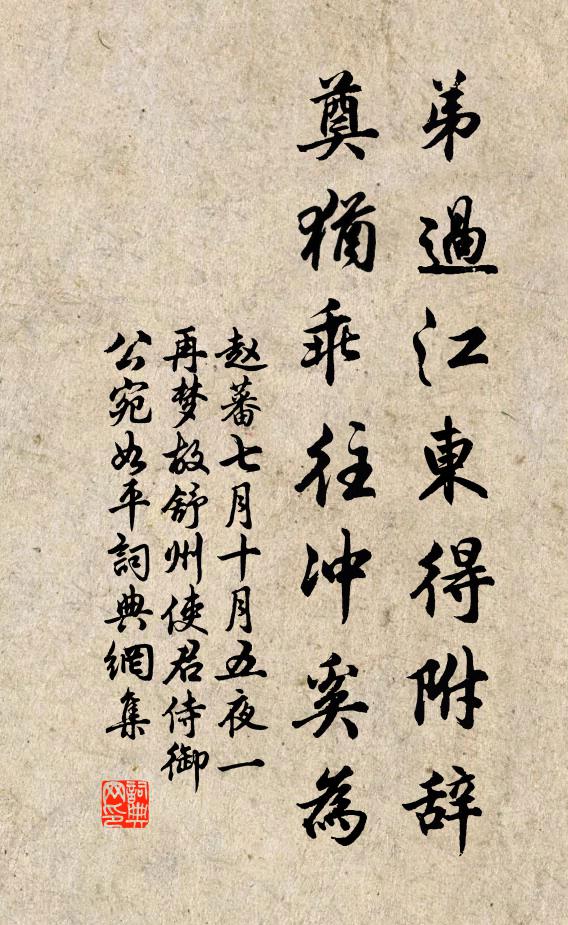 弟過江東得附辞
奠猶乖往冲奚為
赵蕃七月十月五夜一
再梦故舒州使君侍御
公宛如平詞典網集
詞典
网印